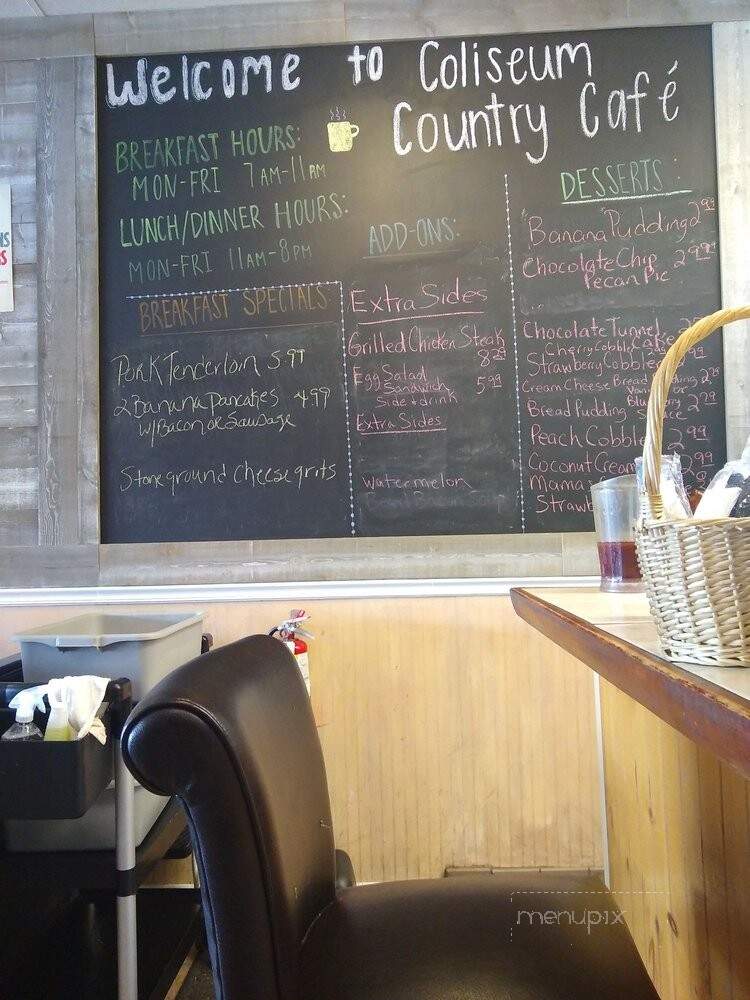 Welcome to Coliseum
Country Café
BREAKFAST HOURS:
MON-FRI 7AM-11AM
LUNCH/DINNER HOURS:
MON-FRI 11AM-8PM
BREAKFAST SPECIALS
Pork Tenderloin 5.99
2 Banana Pancakes 4.99
w/Bacon or Sausage
Stone ground Cheese grits
ADD-ONS:
Extra Sides
Grilled Chicken Steak
8.29
Egg Salad
Sandwich 5.99
Side & drink
Extra Sides
Watermelon
DESSERTS:
Banana Pudding 2.99
Chocolate Chip 2.99
Pecan Pie
Chocolate Tunnel
Cake
Cherry Cobbler
Strawberry Cobbler
Cream Cheese Bread Pudding 2.79
Vanilla or
Bread Pudding Blueberry 2.79
Sauce
Peach Cobbler 2.99
Coconut Cream 2.99
Mamas
Strawb
menupix